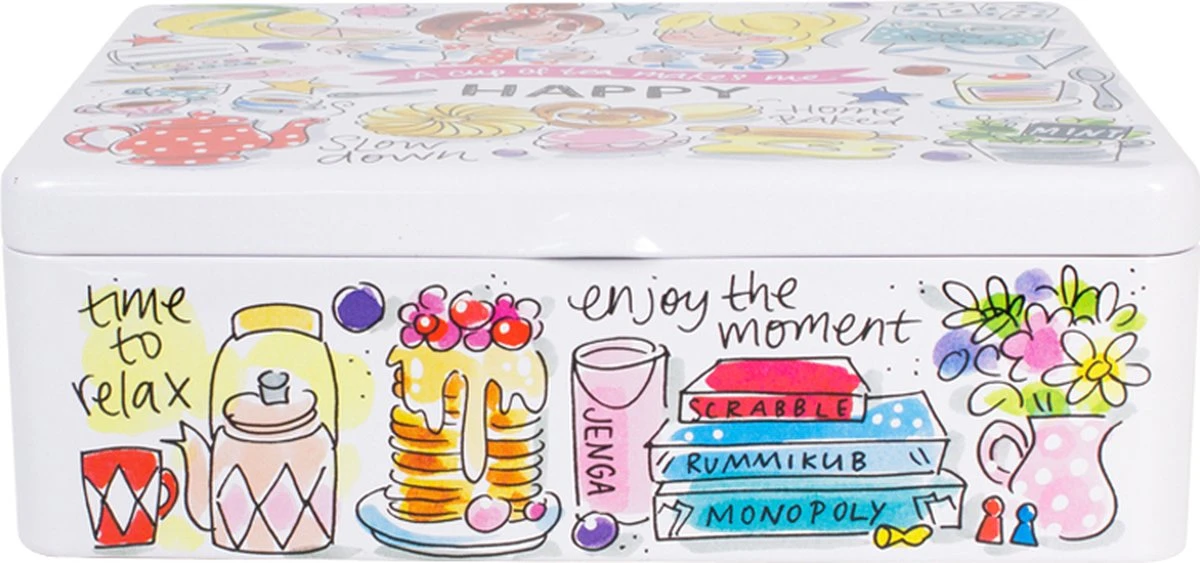 A cup of tea makes me
HAPPY
Home
Baked
Slow
down
MINT
time
to
relax
enjoy the
moment
JENGA
SCRABBLE
RUMMIKUB
MONOPOLY